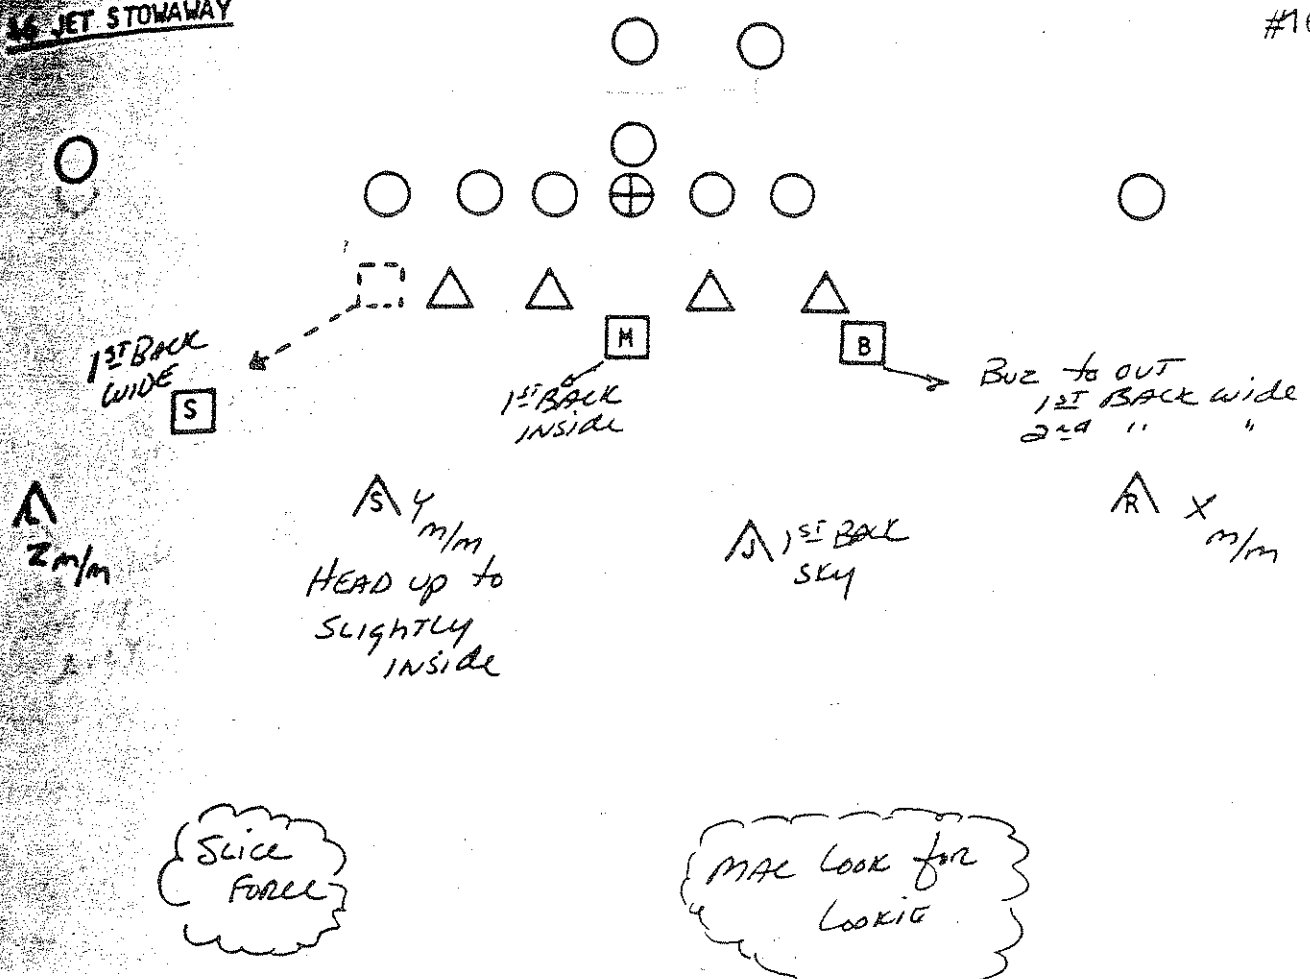 46 JET STOWAWAY
1ST BACK
WIDE
S
M
1ST BACK
INSIDE
B
BUZ to OUT
1ST BACK wide
2nd " "
L
Z m/m
S Y
m/m
HEAD up to
SLIGHTLY
INSIDE
J 1ST BACK
SKY
R X
m/m
SLICE
FORCE
MAC LOOK for
LOOKIE